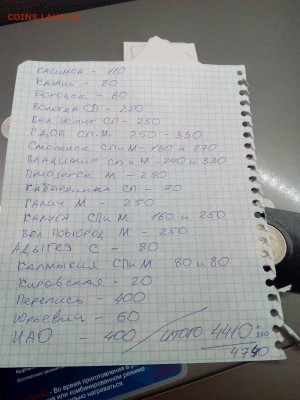 COINS.LAVE.RU
КАСИМОВ - 110
КАЗАНЬ - 20
БОРОВСК - 80
ВОЛОГДА СП - 250
ВЕЛ УСТЮГ СП - 250
ГДОВ СП М 250 - 330
СМОЛЕНСК СП и М - 160 и 270
ВЛАДИМИР СП и М - 240 и 330
ПРИОЗЕРСК М - 230
КАБАРДИНКА СП - 70
ГАЛИЧ М - 250
КАЛУГА СП и М 160 и 250
ВЕЛ НОВГОРОД М - 250
АДЫГЕЯ С - 80
КАЛМЫКИЯ СП и М 80 и 80
КИРОВСКАЯ - 20
ПЕРЕПИСЬ - 400
ЮРЬЕВИЧ - 60
НАО - 400 / ИТОГО 4410 + 330
4740
- Во время приготовления в р
или комбинированном
нагреваться.